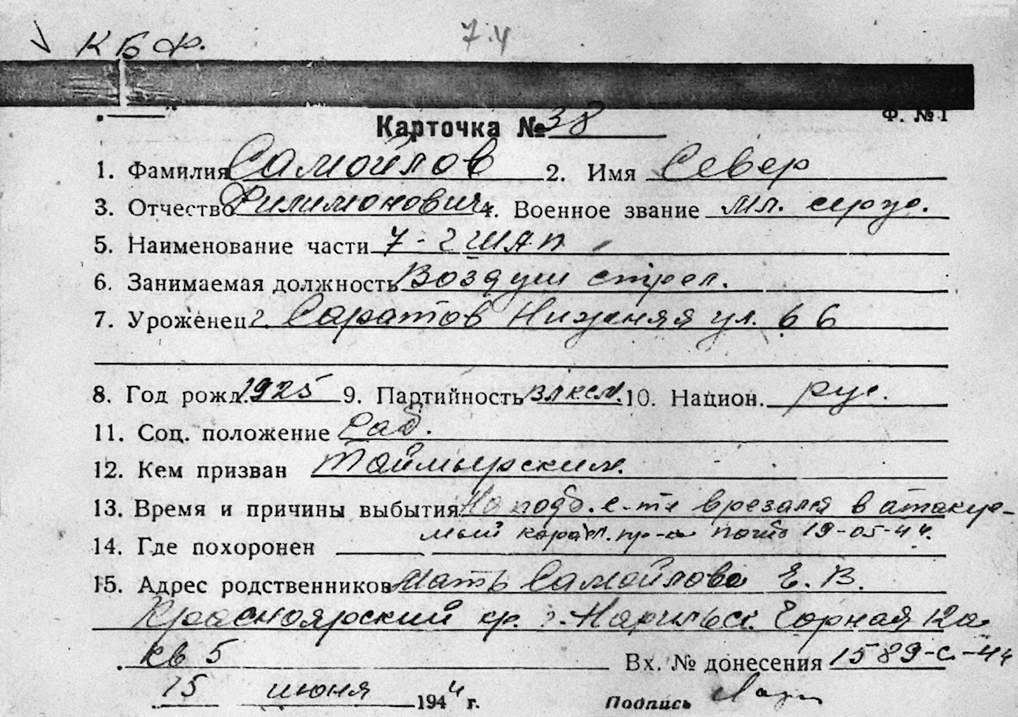 К Б Ф. 7.4
Ф. № 1
Карточка № 38
1. Фамилия Самойлов 2. Имя Север
3. Отчество Филимонович 4. Военное звание мл. серж.
5. Наименование части 7-гШАП
6. Занимаемая должность Воздуш стрел.
7. Уроженец г. Саратов Нижняя ул. 66
8. Год рожд. 1925 9. Партийность ВЛКСМ. 10. Национ. рус.
11. Соц. положение Раб.
12. Кем призван Таймырским.
13. Время и причины выбытия На подб. с-те врезался в атакуе-
мый корабл. пр-ка погиб 19-05-44.
14. Где похоронен
15. Адрес родственников Мать Самойлова Е. В.
Красноярский кр. г. Нарильск Горная 12а
кв 5 Вх. № донесения 1589-с-44
15 июня 1944 г. Подпись